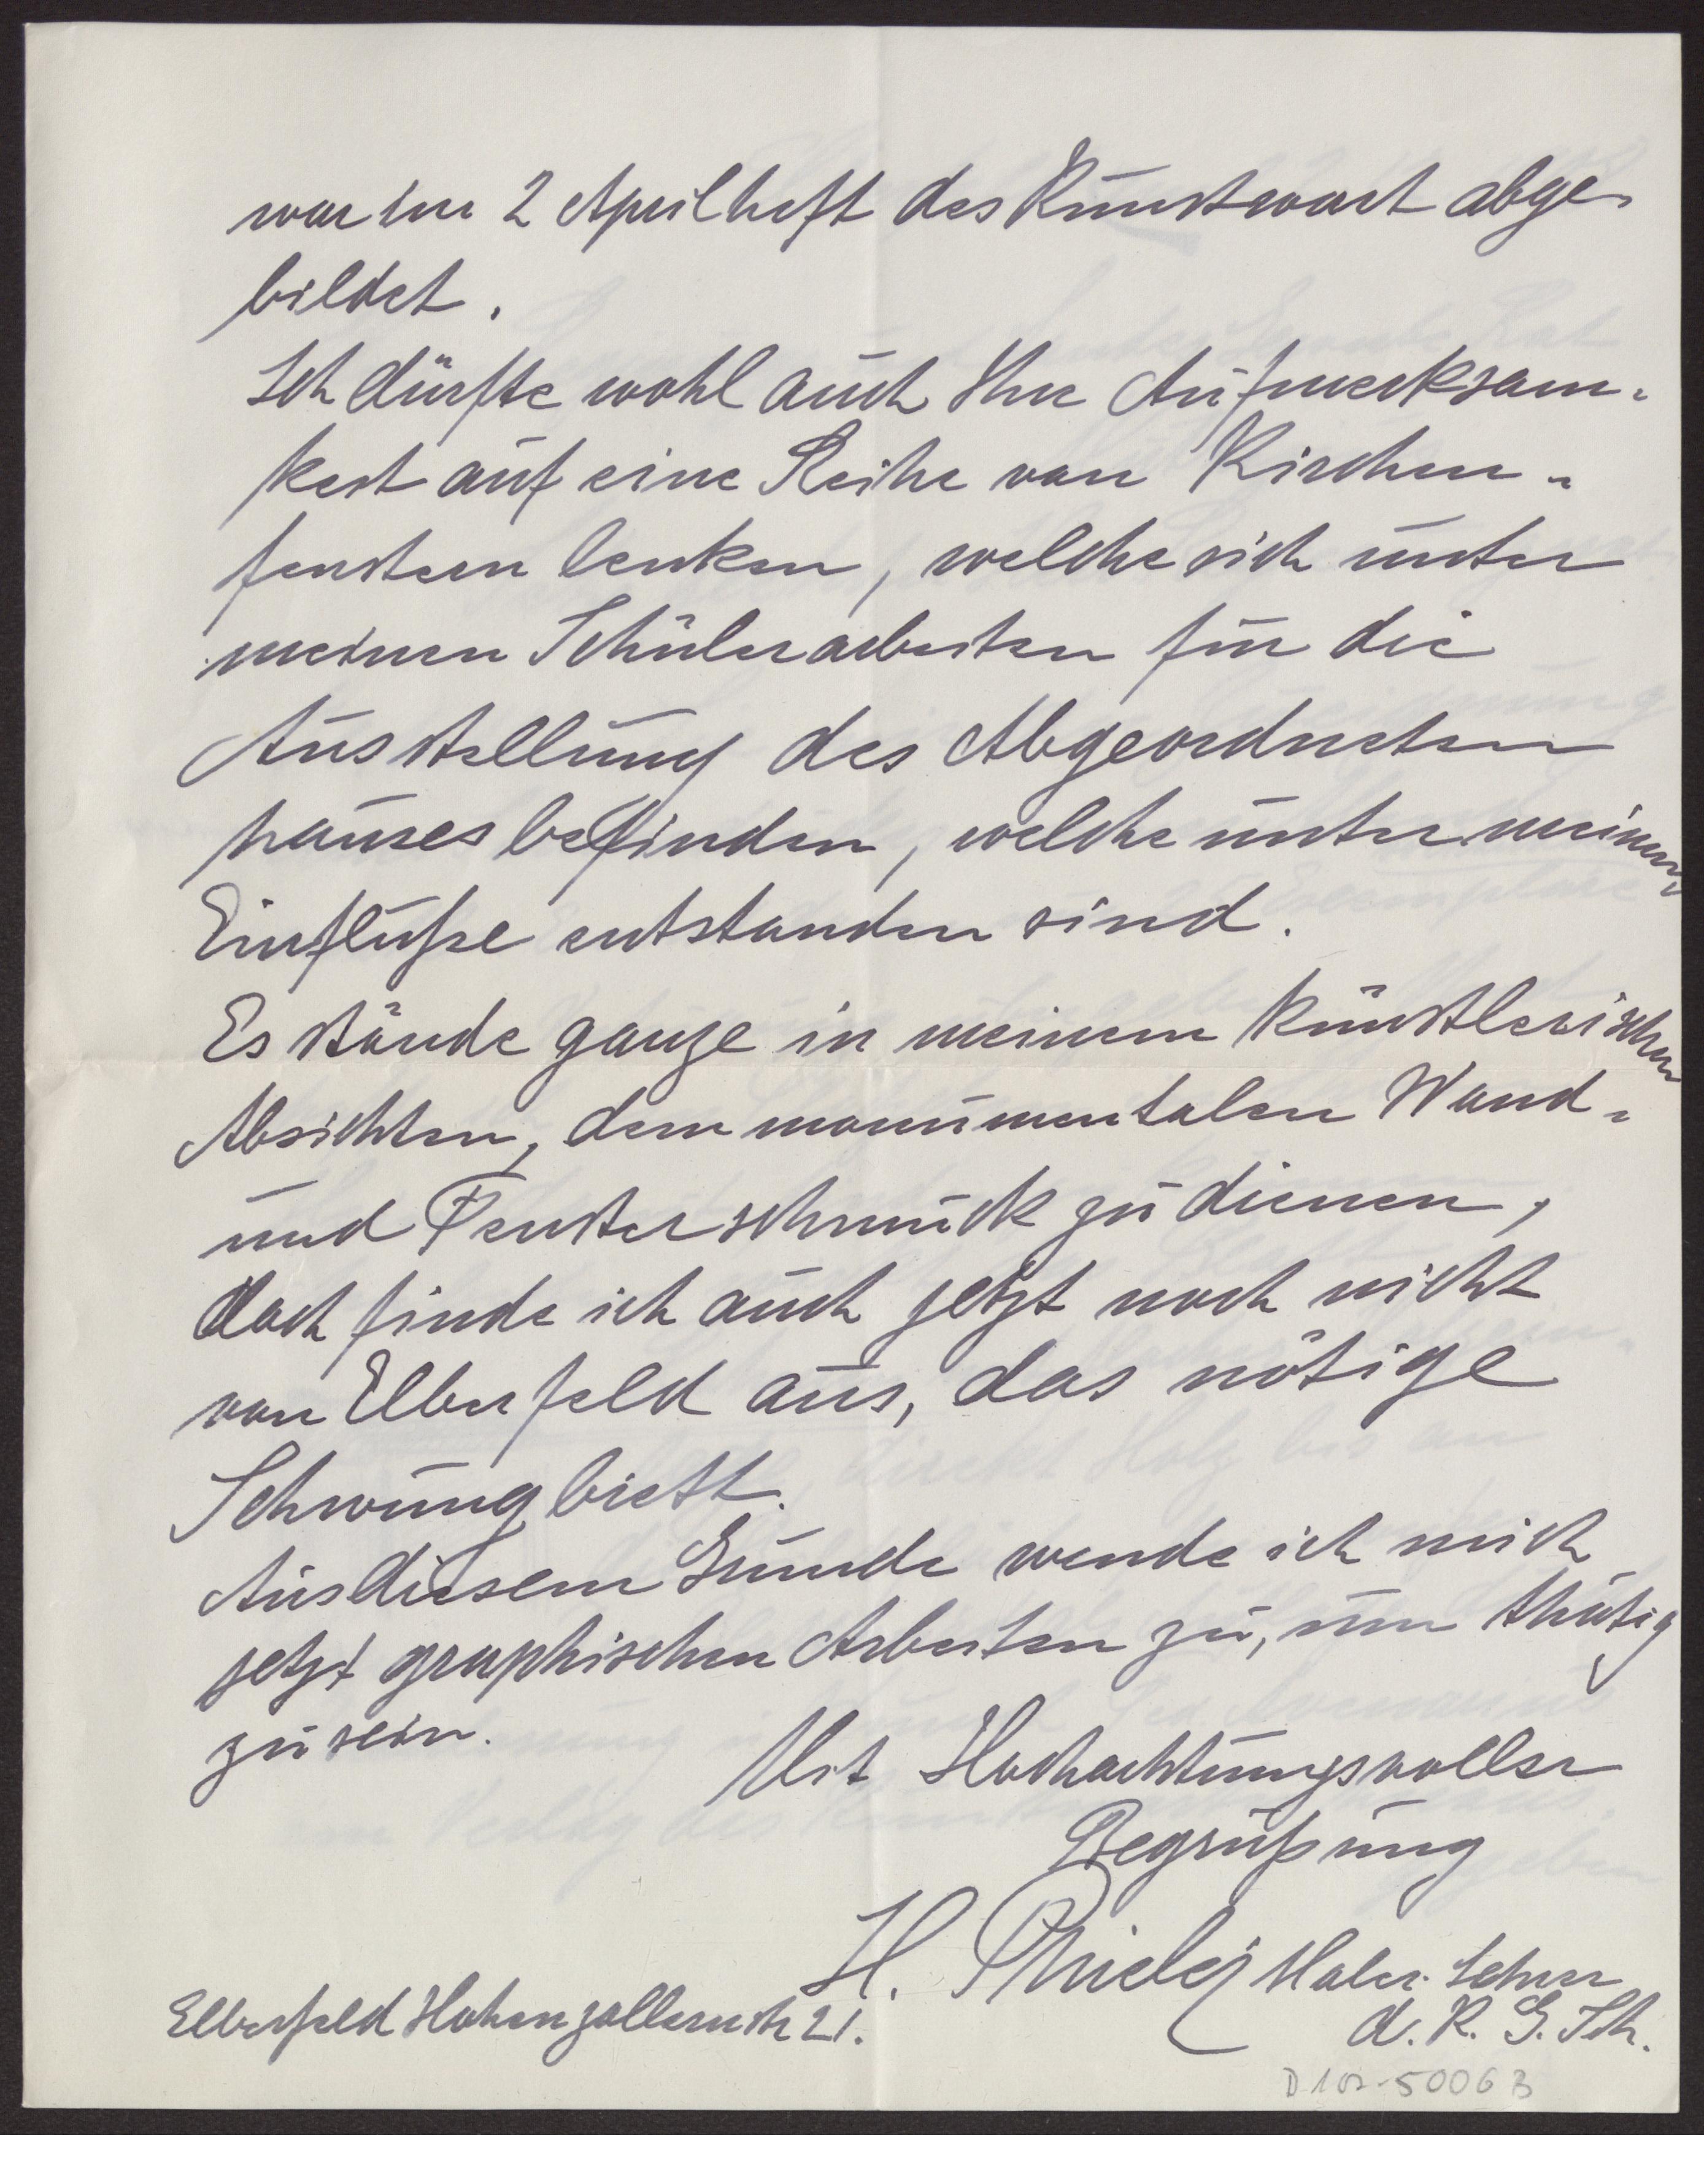 war im 2 Aprilheft des Kunstwart abge-
bildet.
Ich dürfte wohl auch Ihre Aufmerksam-
keit auf eine Reihe von Kirchen-
fenstern lenken, welche sich unter
meinen Schülerarbeiten für die
Ausstellung des Abgeordneten
hauses befinden, welche unter meinem
Einfluße entstanden sind.
Es stände ganze in meinem künstlerischen
Absichten, dem monumentalen Wand-
und Fensterschmuck zu dienen,
doch finde ich auch jetzt noch nicht
von Elberfeld aus, das nötige
Schwung biett.
Aus diesem Grunde wende ich mich
jetzt graphischen Arbeiten zu, um thätig
zu sein.
Mit Hochachtungsvoller
Begrüßung
H. Maler. Lehrer
Elberfeld Hohenzollernstr 21.
d. K. G. Sch.
D 102-5006 B